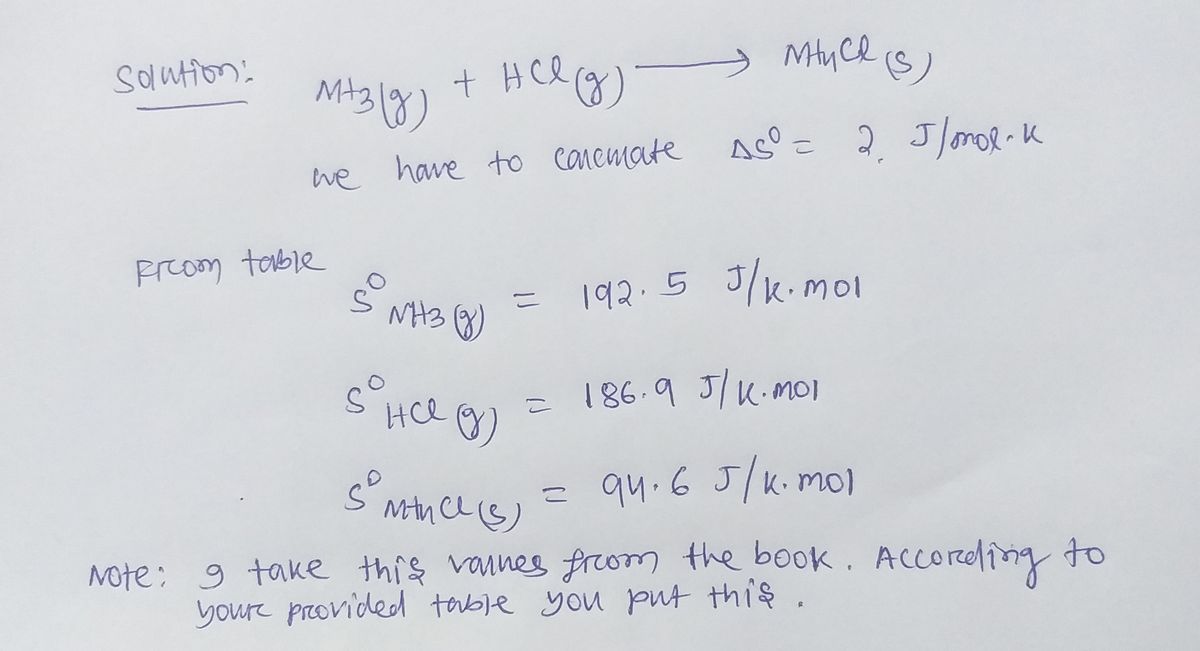 Solution: NH3(g) + HCl(g) ⟶ NH4Cl(s)
we have to calculate ΔS⁰ = ?. J/mol.K
From table
S⁰ NH3(g) = 192.5 J/K.mol
S⁰ HCl(g) = 186.9 J/K.mol
S⁰ NH4Cl(s) = 94.6 J/K.mol
Note: I take this values from the book. According to
your provided table you put this.